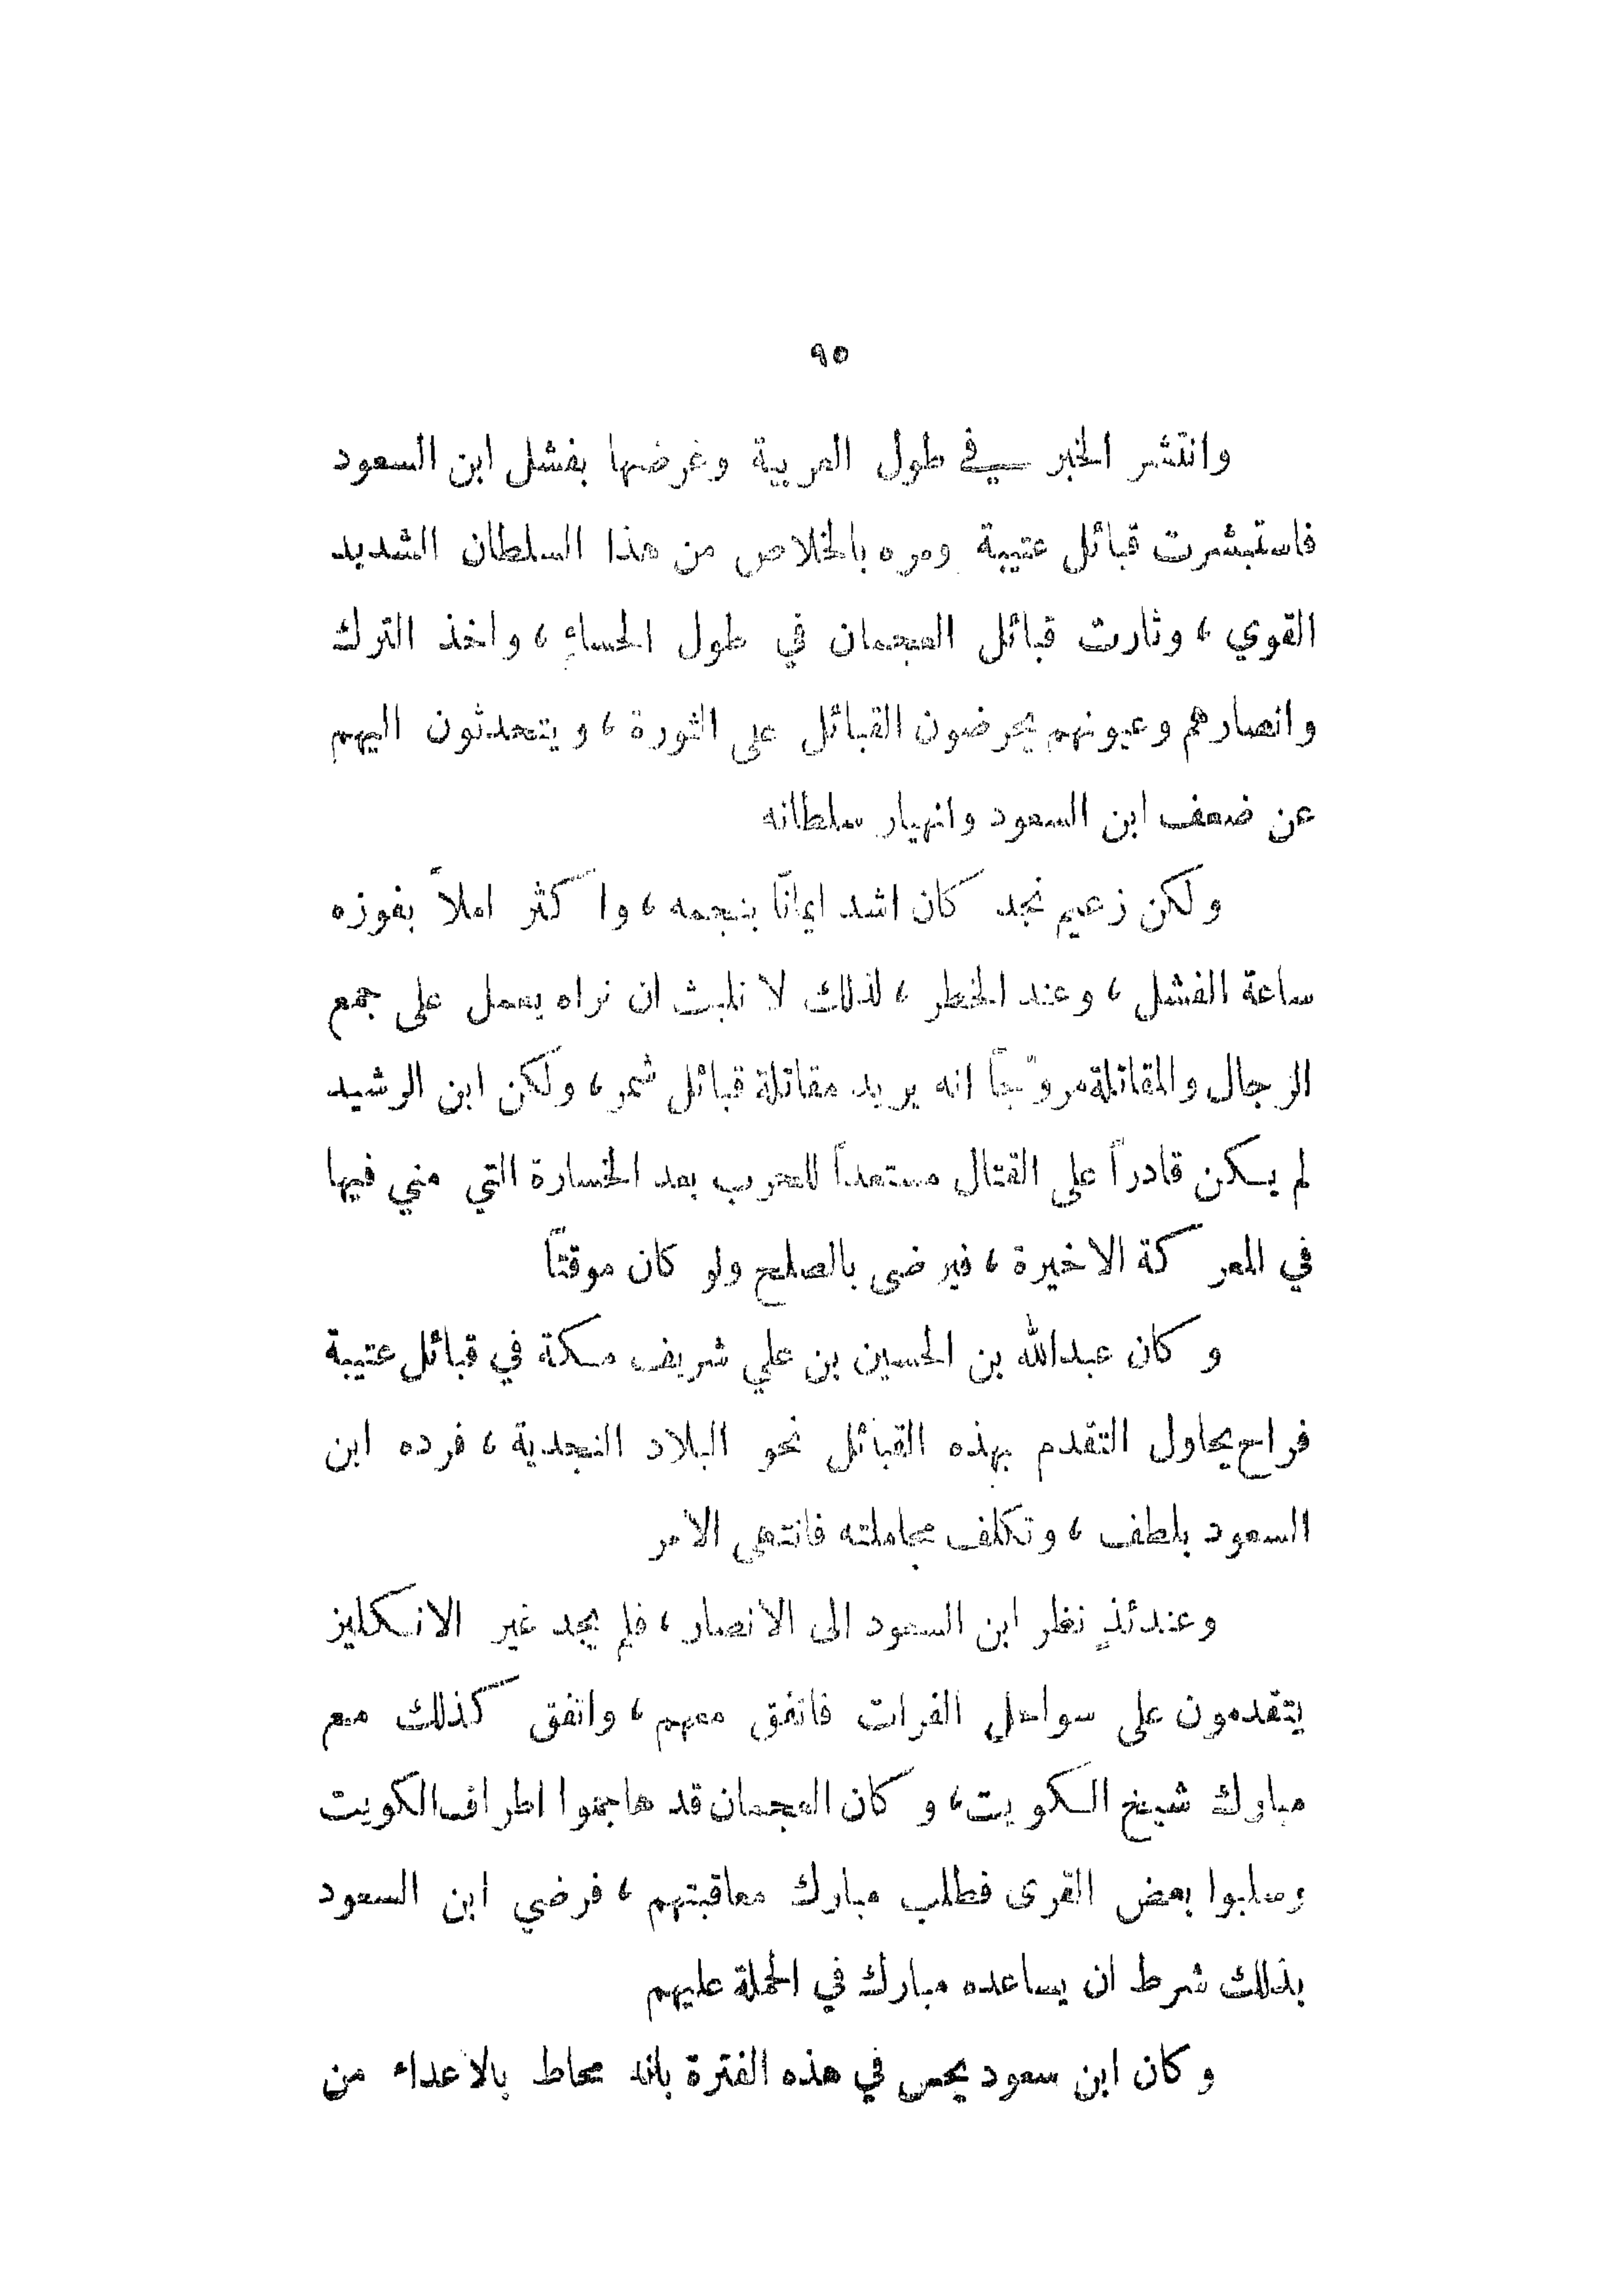 ٩٥
وانتشر الخبر في طول العربية وعرضها بفشل ابن السعود
فاستبشرت قبائل عتيبة ومره بالخلاص من هذا السلطان الشديد
القوي ، وثارت قبائل العجمان في طول الحساء ، واخذ الترك
وانصارهم وعيونهم يحرضون القبائل على الثورة ، ويتحدثون اليهم
عن ضعف ابن السعود وانهيار سلطانه
ولكن زعيم نجد كان اشد ايماناً بنجمه ، واكثر املاً بفوزه
ساعة الفشل ، وعند الخطر ، لذلك لا نلبث ان نراه يعمل على جمع
الرجال والمقاتلة مروّجاً انه يريد مقاتلة قبائل شمر ، ولكن ابن الرشيد
لم يكن قادراً على القتال مستعداً للحرب بعد الخسارة التي مني فيها
في المعركة الاخيرة ، فيرضى بالصلح ولو كان موقتاً
وكان عبدالله بن الحسين بن علي شريف مكة في قبائل عتيبة
فراح يحاول التقدم بهذه القبائل نحو البلاد النجدية ، فرده ابن
السعود بلطف ، وتكلف مجاملته فانتهى الامر
وعندئذٍ نظر ابن السعود الى الانصار ، فلم يجد غير الانكليز
يتقدمون على سواحل الفرات فاتفق معهم ، واتفق كذلك مع
مبارك شيخ الكويت ، وكان العجمان قد هاجموا اطراف الكويت
وسلبوا بعض القرى فطلب مبارك معاقبتهم ، فرضي ابن السعود
بذلك شرط ان يساعده مبارك في الحملة عليهم
وكان ابن سعود يحس في هذه الفترة بانه محاط بالاعداء من